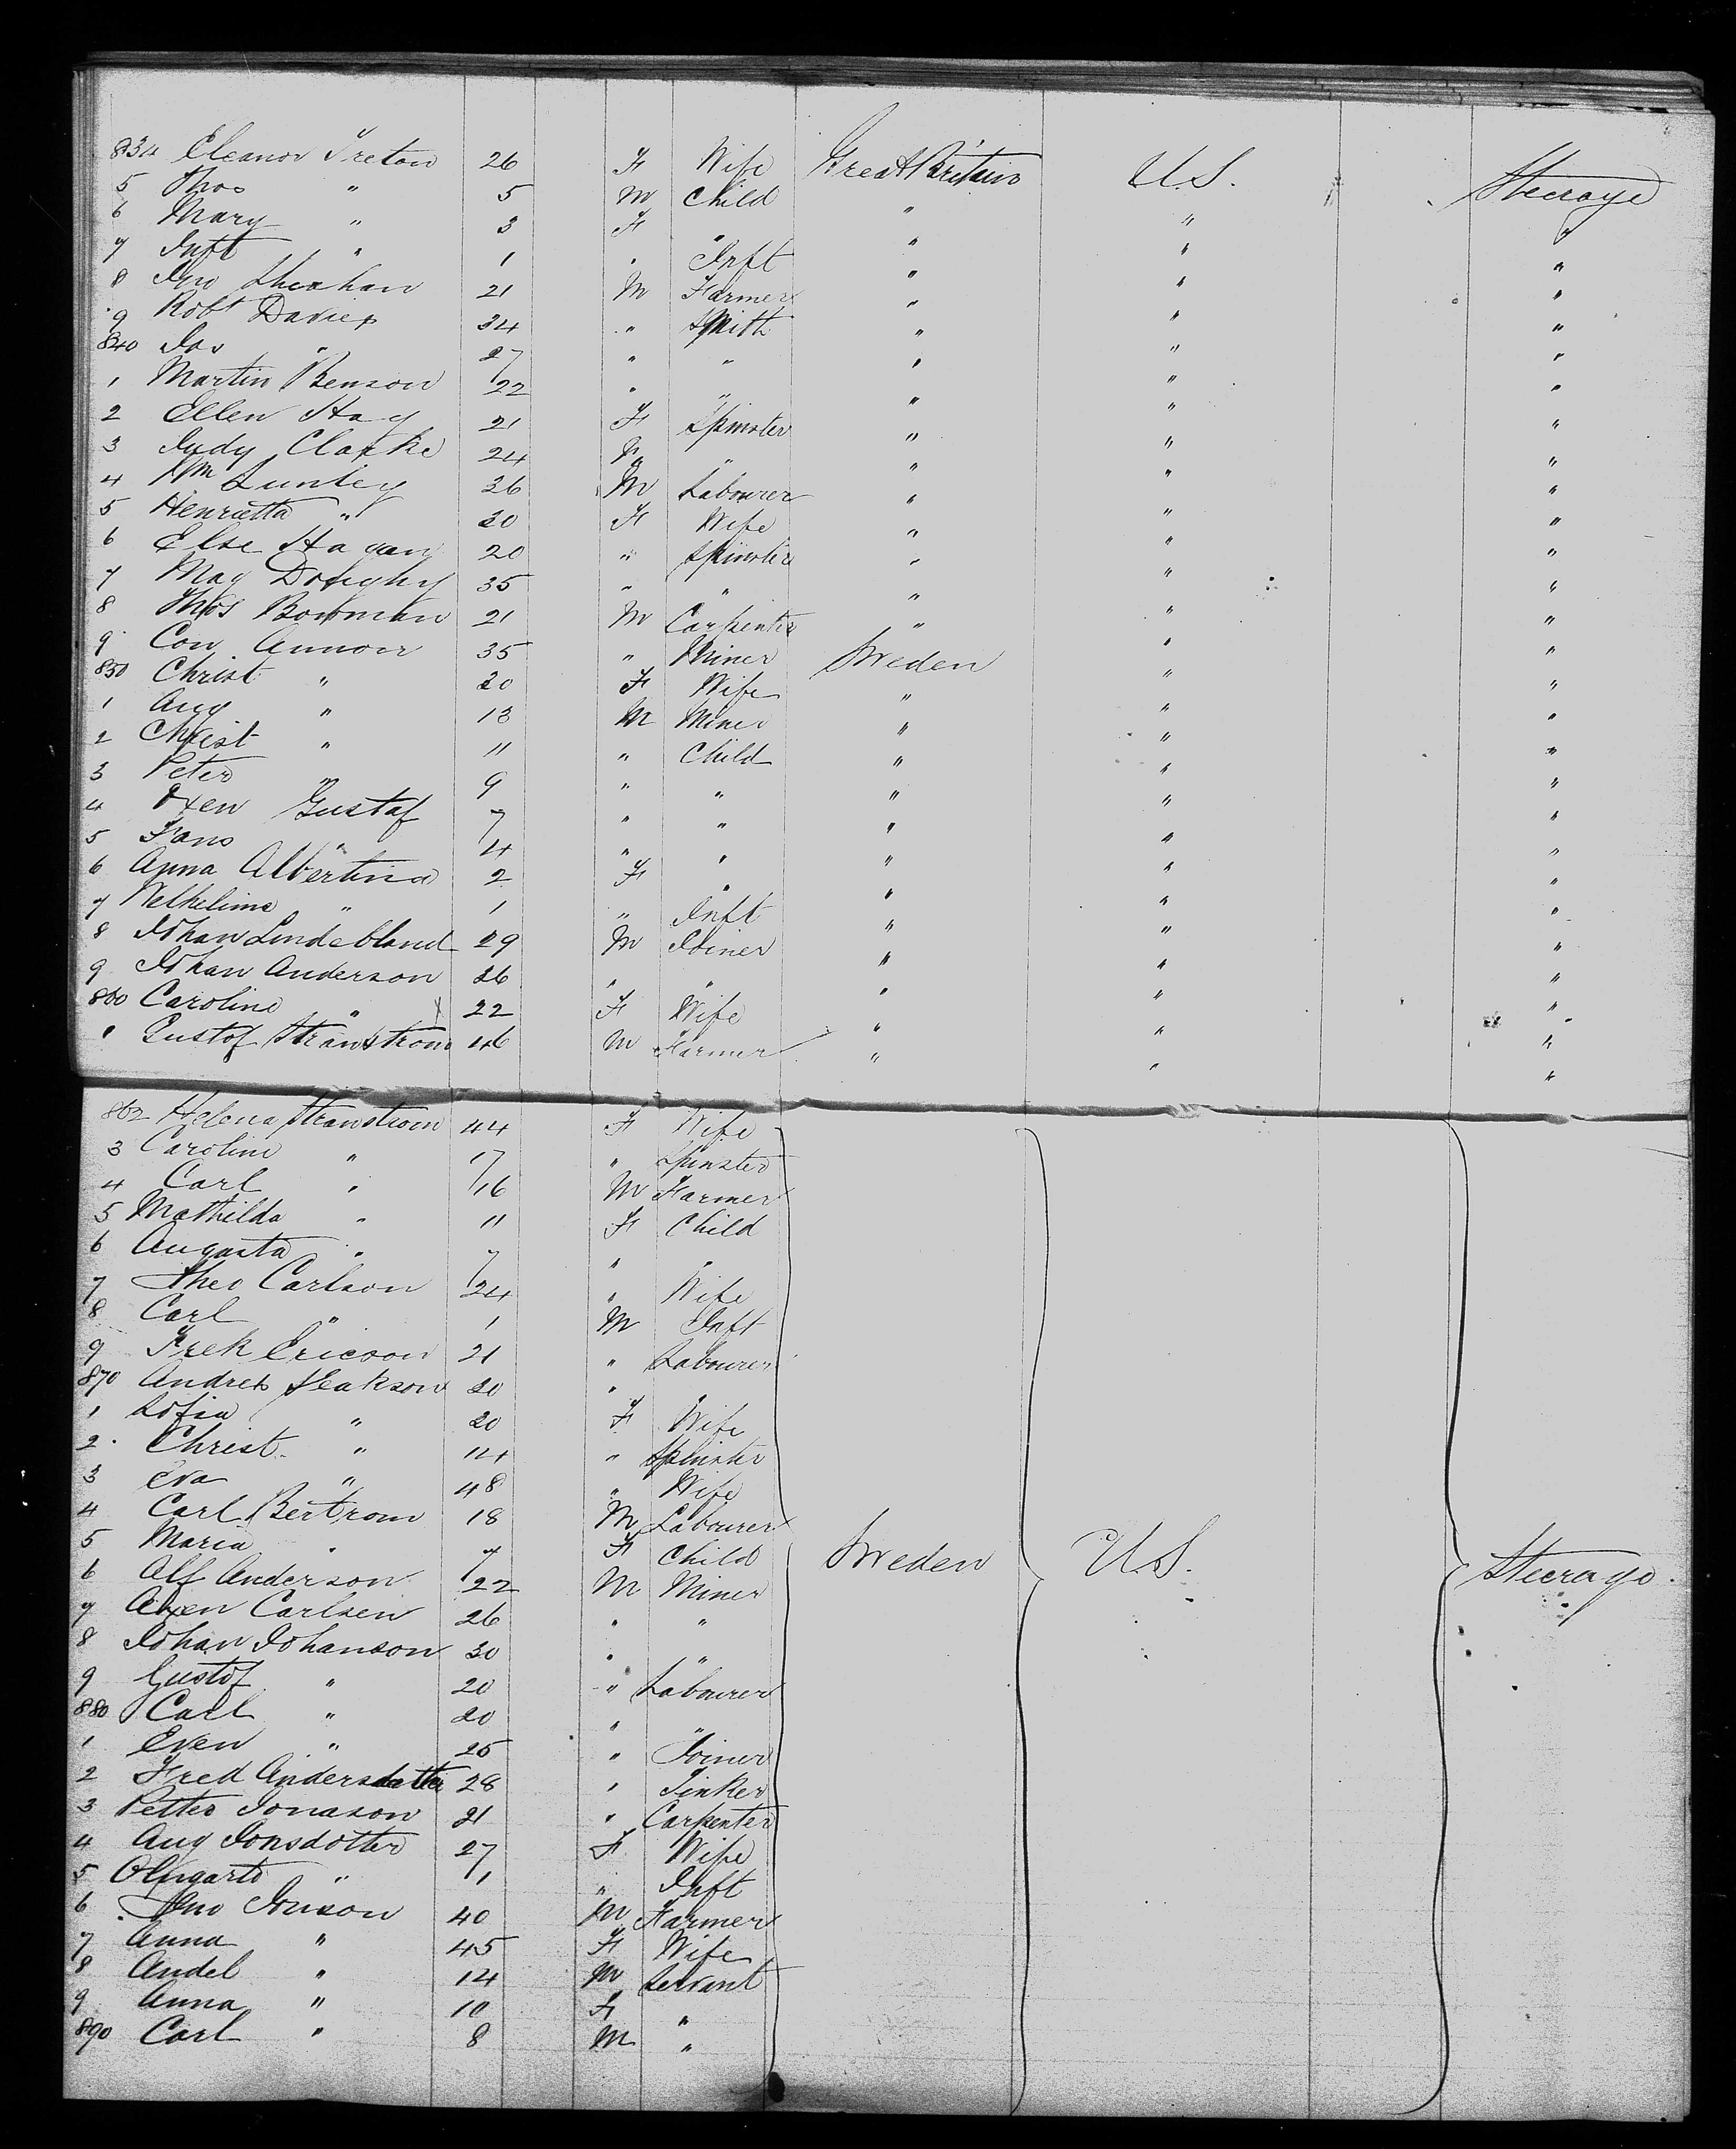 834 Eleanor Ireton 26 F Wife Great Britain U.S. Steerage
5 Thos " 5 M Child " " "
6 Mary " 3 F " " " "
7 Inft " 1 " Inft " " "
8 Jno Sheahan 21 M Farmer " " "
9 Robt Davies 34 " Smith " " "
840 Jas " 27 " " " " "
1 Martin Benson 22 " " " " "
2 Ellen Hay 21 F Spinster " " "
3 Judy Clarke 24 F " " " "
4 Wm Lunley 36 M Labourer " " "
5 Henrietta " 30 F Wife " " "
6 Else Hagan 20 " Spinster " " "
7 Mag 35 " " " " "
8 Thos Bowman 21 M Carpenter " " "
9 Con Annon 35 " Miner Sweden " "
850 Christ " 30 F Wife " " "
1 Aug " 13 M Miner " " "
2 Christ " 11 " Child " " "
3 Peter " 9 " " " " "
4 Gustaf 7 " " " " "
5 Frans " 4 " " " " "
6 Anna Albertina 2 F " " " "
7 Welhelime " 1 " Inft " " "
8 Johan Lindebland 29 M Joiner " " "
9 Johan Anderson 26 " " " " "
860 Caroline " 22 F Wife " " "
1 Gustof Stranstrom 46 M Farmer " " "
862 Helena Stranstrom 44 F Wife
3 Caroline " 17 " Spinster
4 Carl " 16 M Farmer
5 Mathilda " 11 F Child
6 Augusta " 7 " "
7 Theo Carlson 24 " Wife
8 Carl " 1 M Inft
9 Frek Ericson 21 " Labourer
870 Andres 20 " "
1 Sofia " 20 F Wife
2 Christ " 14 " Spinster
3 Eva " 48 " Wife
4 Carl Bertrom 18 M Labourer
5 Maria " 7 F Child Sweden U.S. Steerage
6 Alf Anderson 22 M Miner
7 Carlsen 26 " "
8 Johan Johanson 30 " "
9 Gustof " 20 " Labourer
880 Carl " 20 " "
1 Even " 25 " Joiner
2 Fred Andersdatter 28 " Tinker
3 Petter Jonason 21 " Carpenter
4 Aug Jonsdotter 27 F Wife
5 " 1 " Inft
6 Jno 40 M Farmer
7 Anna " 45 F Wife
8 Andel " 14 M Servant
9 Anna " 10 F "
890 Carl " 8 M "